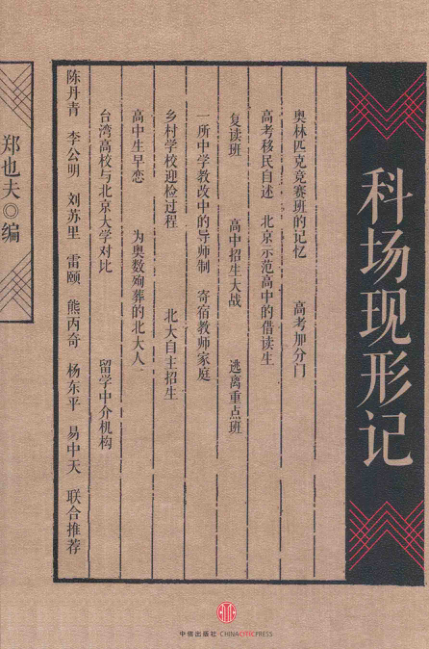 科场现形记
奥林匹克竞赛班的记忆 高考加分门
高考移民自述 北京示范高中的借读生
复读班 高中招生大战 逃离重点班
一所中学教改中的导师制 寄宿教师家庭
乡村学校迎检过程 北大自主招生
高中生早恋 为奥数殉葬的北大人
台湾高校与北京大学对比 留学中介机构
陈丹青 李公明 刘苏里 雷颐 熊丙奇 杨东平 易中天 联合推荐
郑也夫◎编
中信出版社 CHINA CITIC PRESS